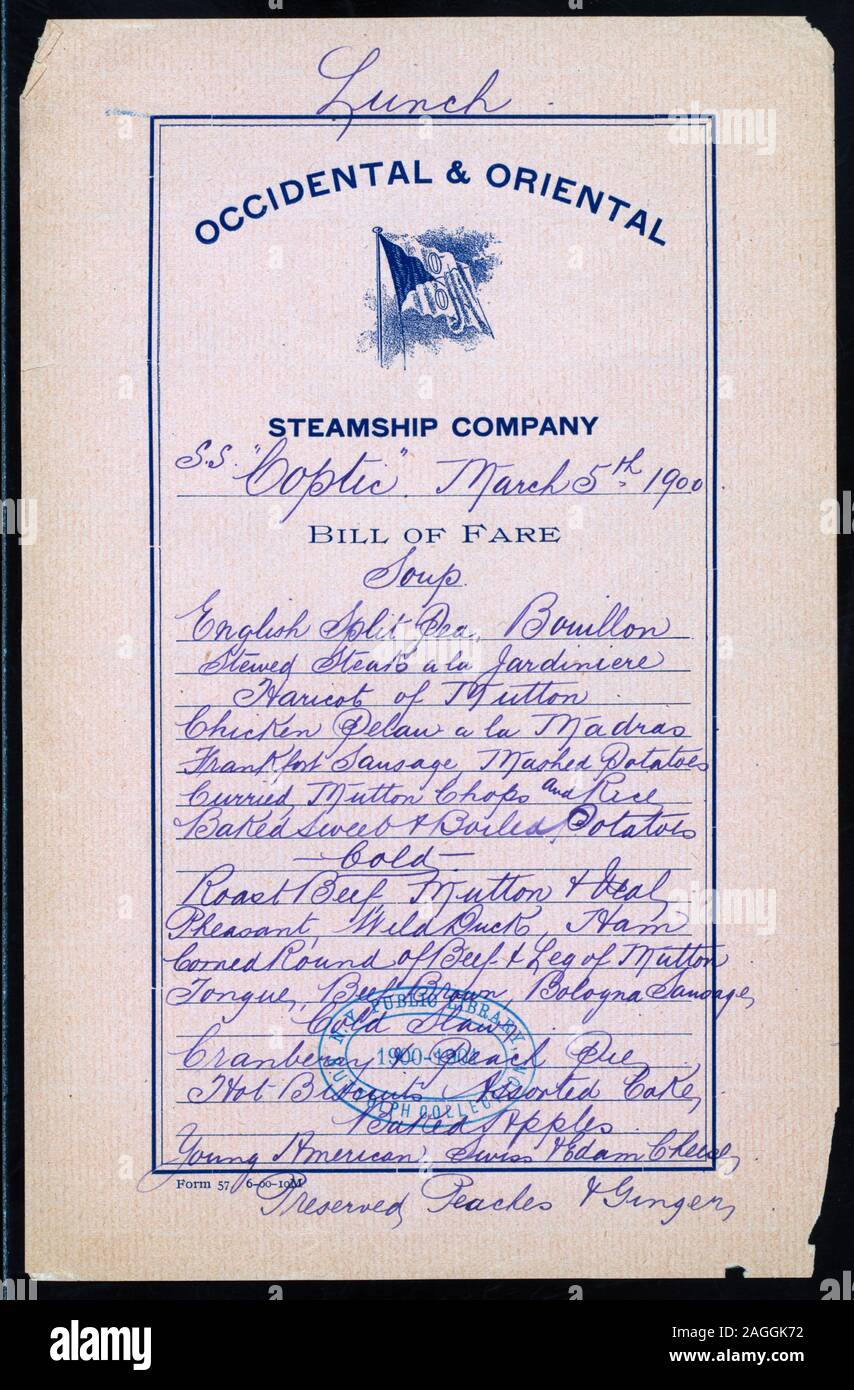 Lunch
OCCIDENTAL & ORIENTAL
STEAMSHIP COMPANY
S.S. "Coptic". March 5th. 1900.
BILL OF FARE
Soup
English Split Pea, Bouillon
Stewed Steak a la Jardiniere
Haricot of Mutton
Chicken Pelau a la Madras
Frankfort Sausage Mashed Potatoes
Curried Mutton Chops and Rice
Baked Sweet & Boiled Potatoes
- Cold -
Roast Beef, Mutton & Veal,
Pheasant, Wild Duck, Ham
Corned Round of Beef & Leg of Mutton
Tongue, Beef Brawn, Bologna Sausage,
Cold Slaw
N.Y. PUBLIC LIBRARY
1900-1901
BUTTOLPH COLLECTION
Cranberry & Peach Pie
Hot Biscuits Assorted Cake,
Baked Apples
Young American, Swiss & Edam Cheese,
Form 57 6-00-10M
Preserved Peaches & Ginger,
alamy
Image ID: 2AGGK72
www.alamy.com